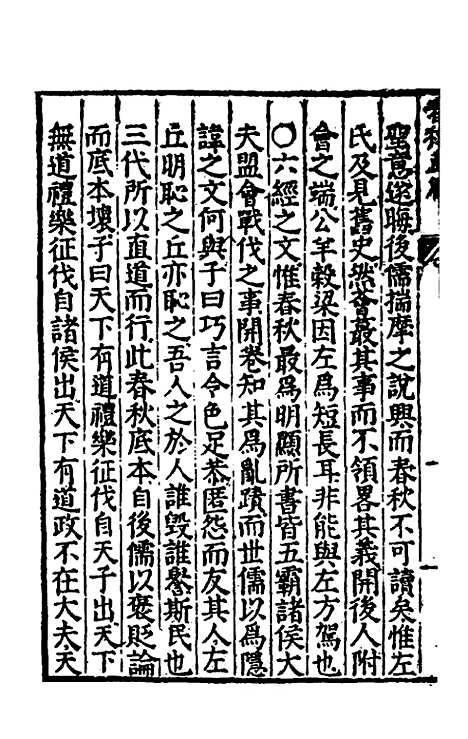 聖意遂晦後儒揣摩之說興而春秋不可讀矣惟左
氏及見舊史然薈蕞其事而不領畧其義開後人附
會之端公羊穀梁因左爲短長耳非能與左方駕也
〇六經之文惟春秋最爲明顯所書皆五霸諸侯大
夫盟會戰伐之事開卷知其爲亂蹟而世儒以爲隱
諱之文何與子曰巧言令色足恭匿怨而友其人左
丘明恥之丘亦恥之吾人之於人誰毀誰譽斯民也
三代所以直道而行此春秋底本自後儒以褒貶論
而底本壞子曰天下有道禮樂征伐自天子出天下
無道禮樂征伐自諸侯出天下有道政不在大夫天